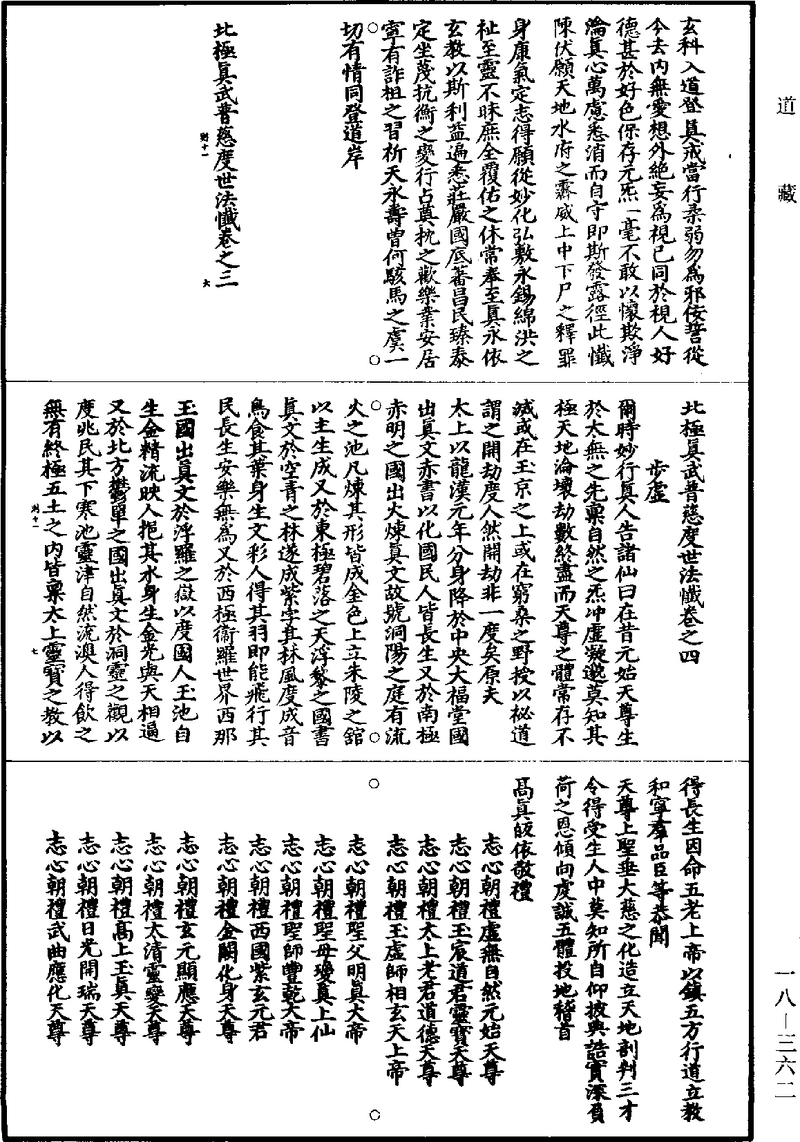 道藏
玄科入道登真戒當行柔弱勿為邪佞誓從
今去內無愛想外絕妄為視己同於視人好
德甚於好色保存元炁一毫不敢以懷欺淨
瀹真心萬慮悉消而自守即斯發露徑此懺
陳伏願天地水府之霽威上中下尸之釋罪
身康氣定志得願從妙化弘敷永錫綿洪之
祉至靈不昧庶全覆佑之休常奉至真永依
玄教以斯利益遍悉莊嚴國底蕃昌民臻泰
定坐蔑抗衡之變行占奠枕之歡樂業安居
寧有詐狙之習祈天永壽曾何駭馬之虞一
切有情同登道岸
北極真武普慈度世法懺卷之三
別十一
六
北極真武普慈度世法懺卷之四
步虛
爾時妙行真人告諸仙曰在昔元始天尊生
於大無之先稟自然之炁沖虛凝邈莫知其
極天地淪壞劫數終盡而天尊之體常存不
滅或在玉京之上或在窮桑之野授以祕道
謂之開劫度人然開劫非一度矣原夫
太上以龍漢元年分身降於中央大福堂國
出真文赤書以化國民人皆長生又於南極
赤明之國出火煉真文故號洞陽之庭有流
火之池凡煉其形皆成金色上立朱陵之館
以主生成又於東極碧落之天浮黎之國書
真文於空青之林遂成紫字其林風度成音
鳥食其葉身生文彩人得其羽即能飛行其
民長生安樂無為又於西極衛羅世界西那
玉國出真文於浮羅之嶽以度國人玉池自
生金精流映人挹其水身生金光與天相過
又於北方鬱單之國出真文於洞靈之觀以
度兆民其下寒池靈津自然流澳人得飲之
無有終極五土之內皆稟太上靈寶之教以
別十一
七
得長生因命五老上帝以鎮五方行道立教
和寧羣品臣等恭聞
天尊上聖垂大慈之化造立天地剖判三才
令得受生人中莫知所自仰披典誥實深負
荷之恩傾向虔誠五體投地稽首
高真皈依敬禮
志心朝禮虛無自然元始天尊
志心朝禮玉宸道君靈寶天尊
志心朝禮太上老君道德天尊
志心朝禮玉虛師相玄天上帝
志心朝禮聖父明真大帝
志心朝禮聖母瓊真上仙
志心朝禮聖師豐乾大帝
志心朝禮西國紫玄元君
志心朝禮金闕化身天尊
志心朝禮玄元顯應天尊
志心朝禮太清靈變天尊
志心朝禮高上玉真天尊
志心朝禮日光開瑞天尊
志心朝禮武曲應化天尊
一八—三六二